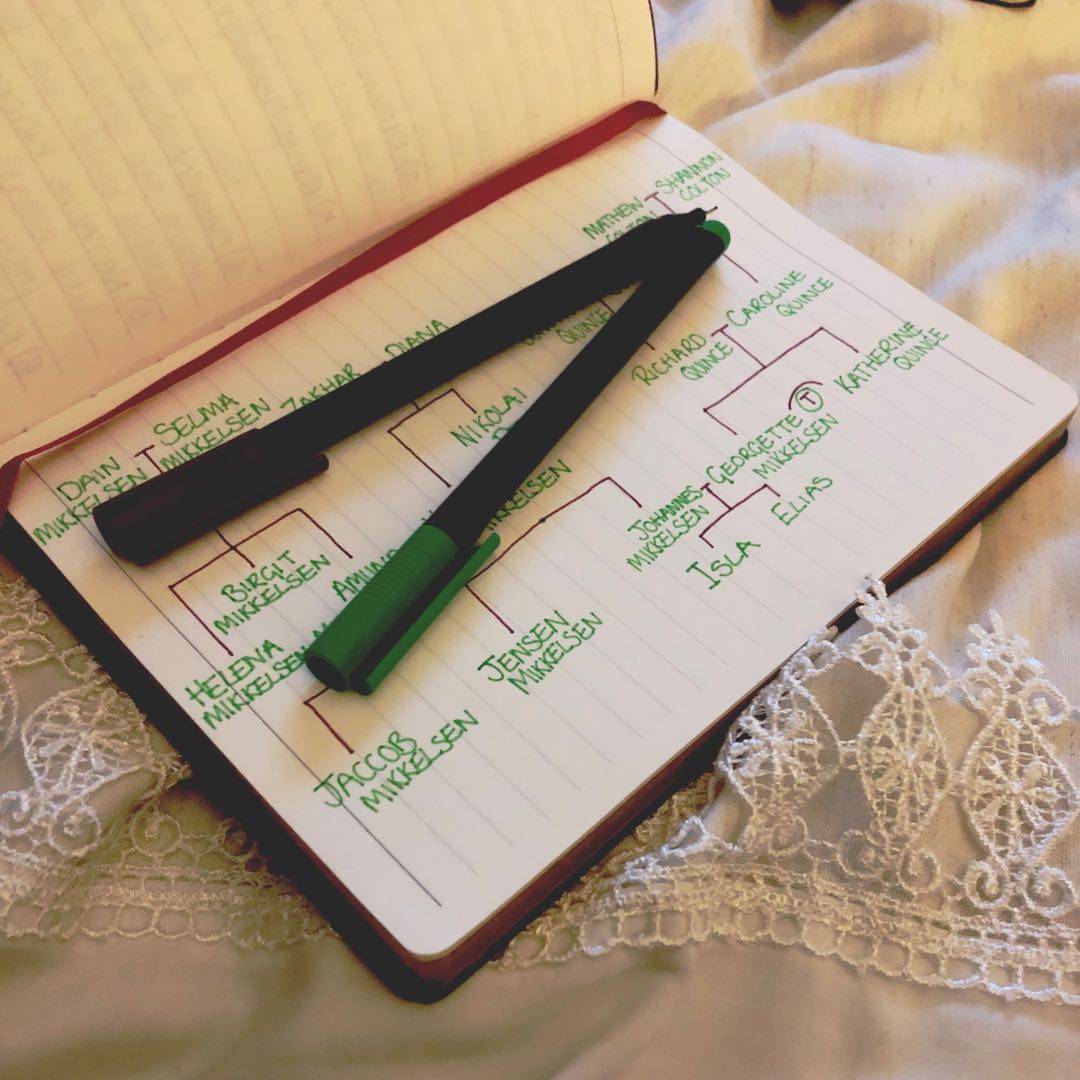 SHANNON
COLTON
MATHEW
COLTON
CAROLINE
QUINCE
RICHARD
QUINCE
QUINCE
KATHERINE
QUINCE
DIANA
ZAKHAR
SELMA
MIKKELSEN
DAIN
NIKOLAI
GEORGETTE T
MIKKELSEN
JOHANNES
MIKKELSEN
ELIAS
ISLA
BIRGIT
MIKKELSEN
HELENA
MIKKELSEN
JENSEN
MIKKELSEN
JACCOB
MIKKELSEN